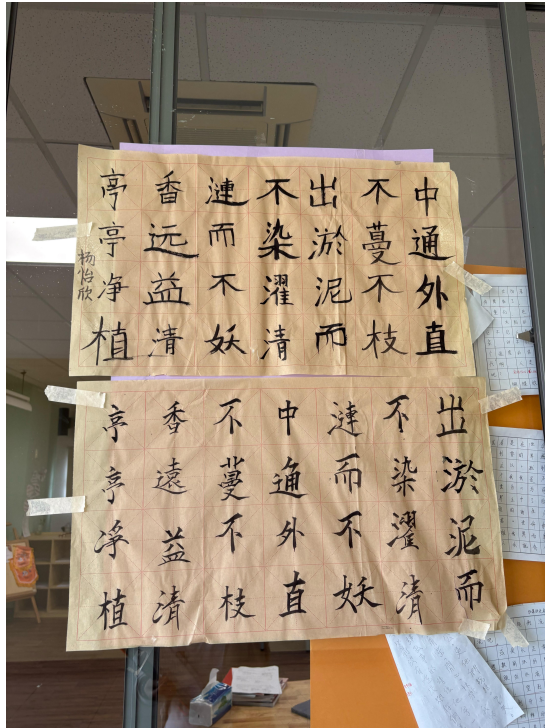 中通外直
不蔓不枝
出淤泥而
不染濯清
漣而不妖
香远益清
亭亭净植
杨怡欣
出淤泥而
不染濯清
漣而不妖
中通外直
不蔓不枝
香遠益清
亭亭净植